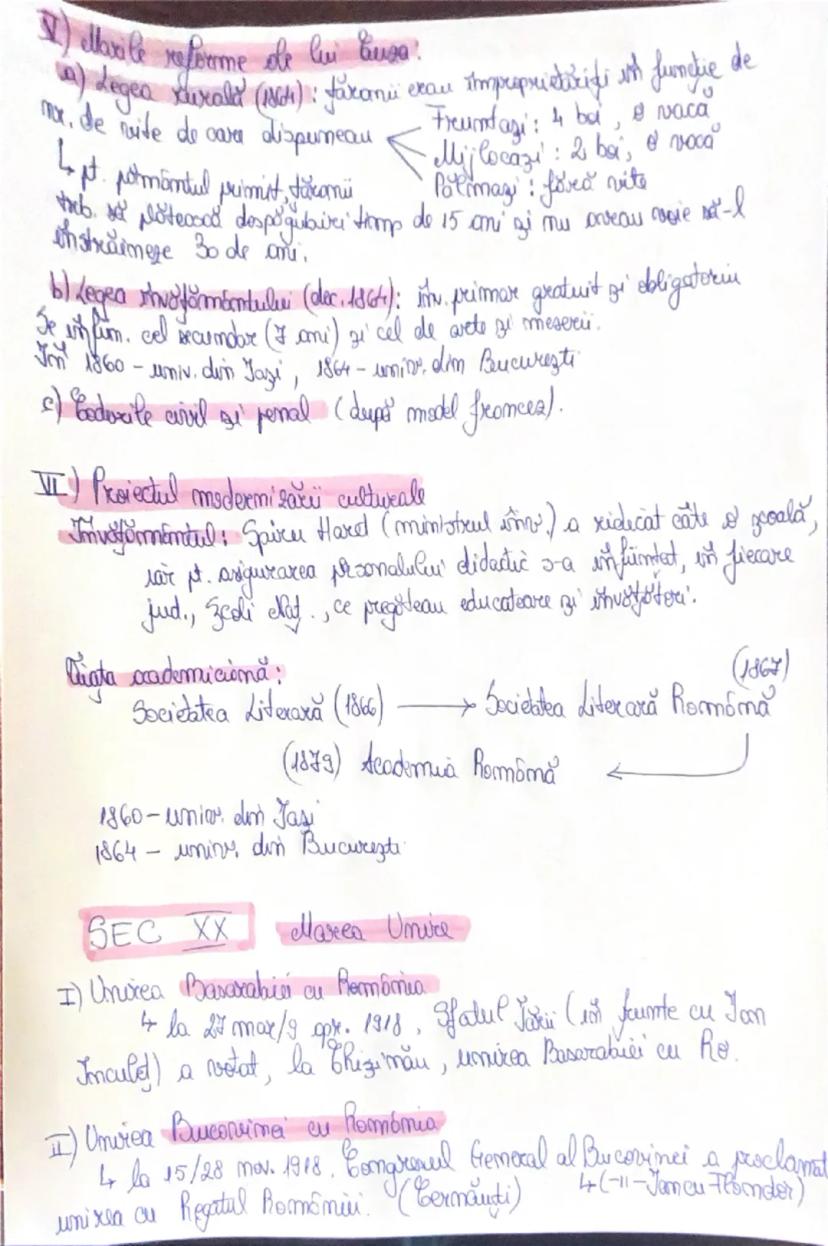 V) Marile reforme ale lui Cuza:
a) Legea rurală (1864): țăranii erau împroprietăriți în funcție de
nr. de vite de care dispuneau
Fruntași: 4 boi, o vacă
Mijlocași: 2 boi, o vacă
Pălmași: fără vite
↳ pt. pământul primit, țăranii
treb. să plătească despăgubiri timp de 15 ani și nu aveau voie să-l
înstrăineze 30 de ani.
b) Legea învățământului (dec. 1864): înv. primar gratuit și obligatoriu
Se înfiin. cel secundar (7 ani) și cel de arte și meserii.
În 1860 - univ. din Iași, 1864 - univ. din București
c) Codurile civil și penal (după model francez).
VI) Proiectul modernizării culturale
Învățământul: Spiru Haret (ministrul înv.) a ridicat câte o școală,
iar pt. asigurarea personalului didactic s-a înființat, în fiecare
jud., Școli Naț., ce pregăteau educatoare și învățători.
Viața academiciană:
(1867)
Societatea Literară (1866) → Societatea Literară Română
(1879) Academia Română ←
1860 - univ. din Iași
1864 - univ. din București
SEC XX Marea Unire
I) Unirea Basarabiei cu România
↳ la 27 mar/9 apr. 1918, Sfatul Țării (în frunte cu Ion
Inculeț) a votat, la Chișinău, unirea Basarabiei cu Ro.
II) Unirea Bucovinei cu România
↳ la 15/28 nov. 1918. Congresul General al Bucovinei a proclamat
unirea cu Regatul României. (Cernăuți) ↳(-11- Iancu Flondor)